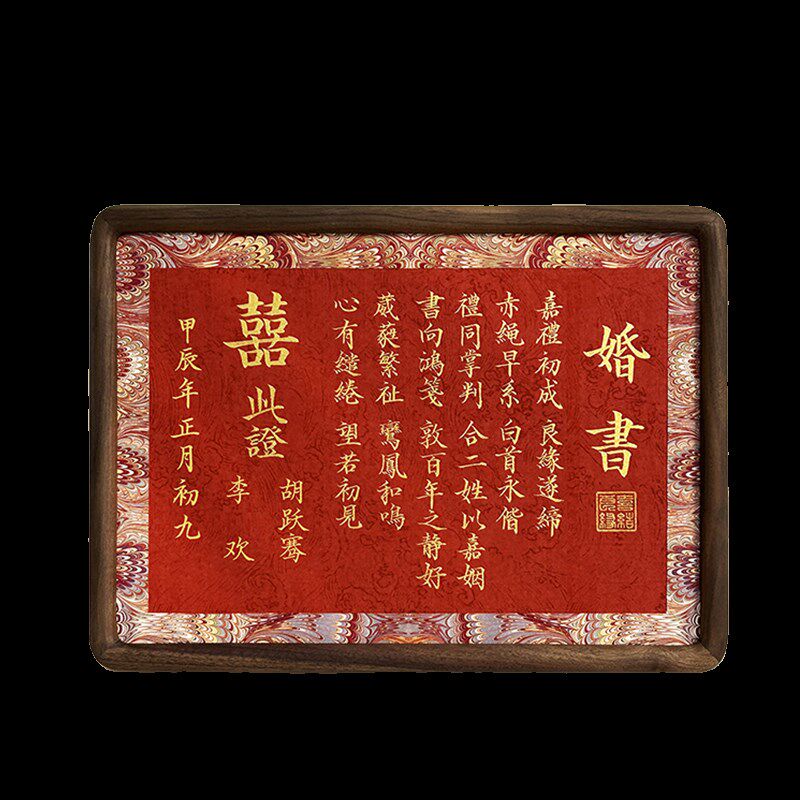 婚書
喜結良緣
嘉禮初成 良緣遂締
赤繩早系 白首永偕
禮同掌判 合二姓以嘉姻
書向鴻箋 敦百年之靜好
葳蕤繁祉 鸞鳳和鳴
心有繾綣 望若初見
囍 此證
胡跃骞
李欢
甲辰年正月初九